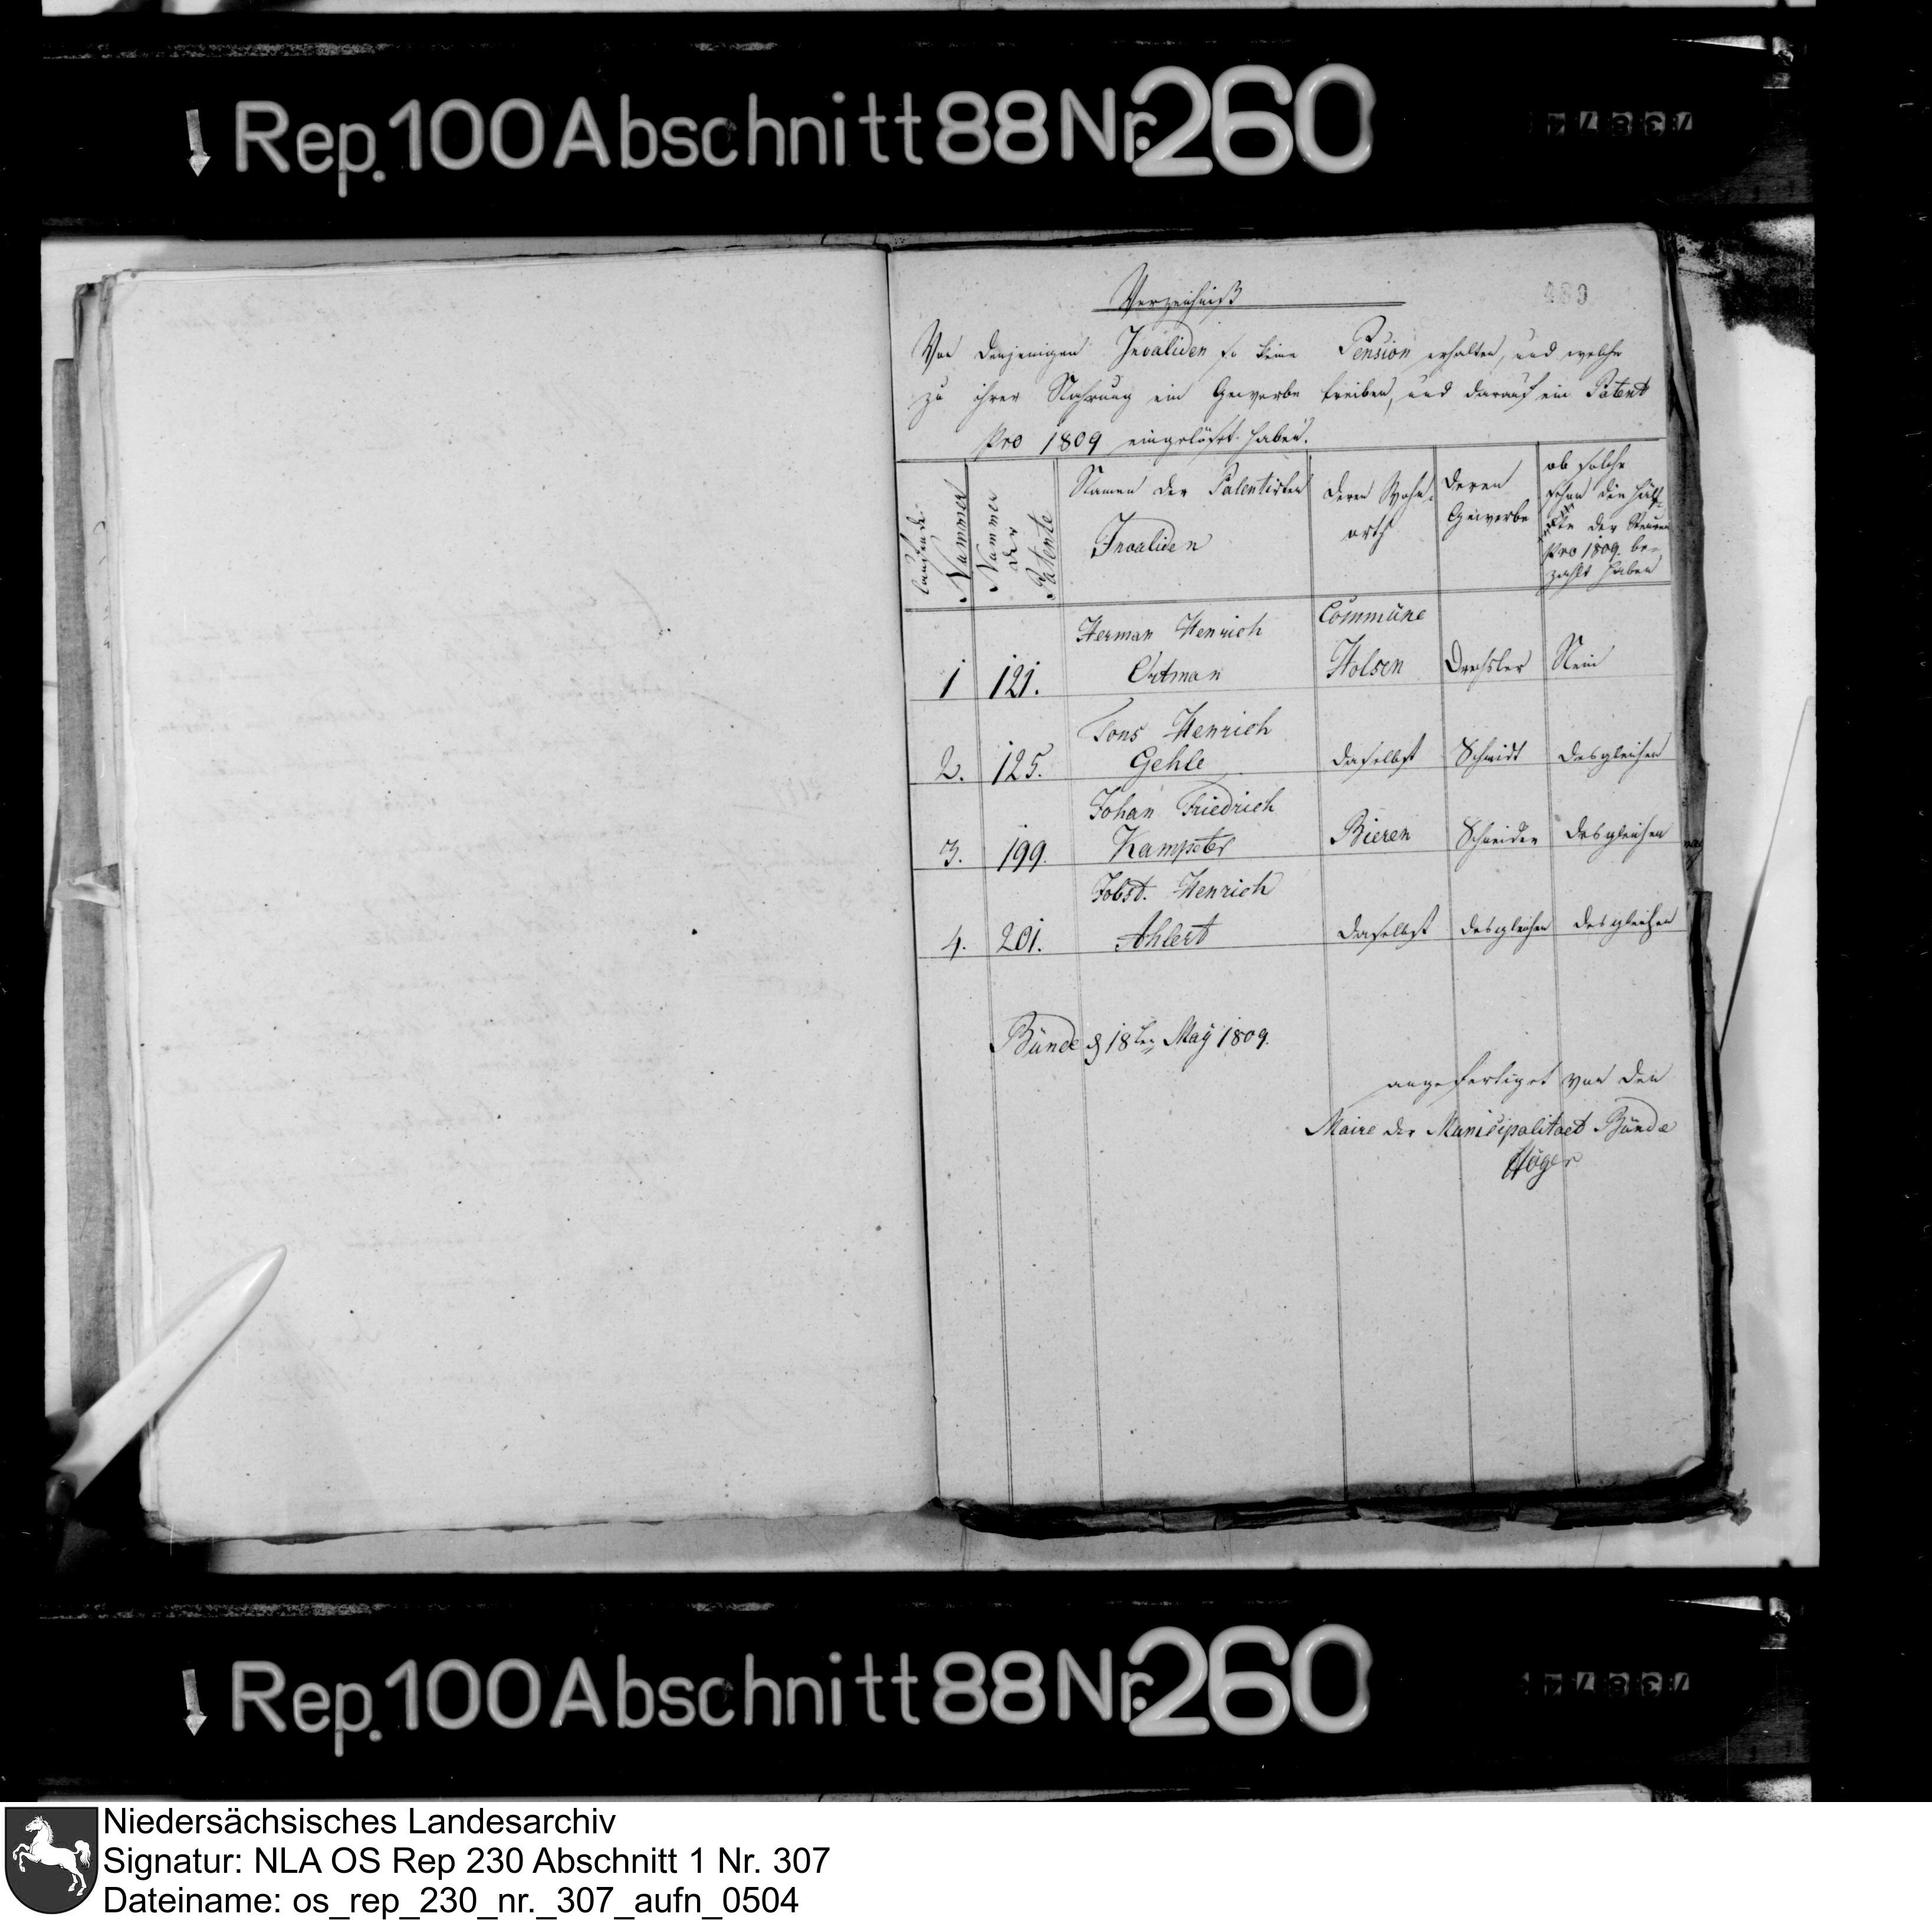 Rep. 100 Abschnitt 88 Nr. 260
480
Verzeichniß
Von denjenigen Invaliden so keine Pension erhalten, und welche
zu ihrer Nahrung ein Gewerbe treiben, und darauf ein Patent
pro 1809 eingelößt haben.
laufende Nummer
Nummer der Patente
Namen der Patentirten Invaliden
deren Wohn-
orth
deren
Gewerbe
ob solche
schon die Hälf-
te der Steuer
pro 1809. be-
zahlt haben
Herman Henrich Commüne
1 121. Ortman Holsen Drechsler Nein
Tons Henrich
2. 125. Gehle daselbst Schmidt desgleichen
Johan Friedrich
3. 199. Kampeter Bieren Schneider desgleichen
Jobst. Henrich
4. 201. Ahlert daselbst desgleichen desgleichen
Bünde d 18ten May 1809.
angefertiget von den
Maire der Municipalitaet Bünde
Rep. 100 Abschnitt 88 Nr. 260
Niedersächsisches Landesarchiv
Signatur: NLA OS Rep 230 Abschnitt 1 Nr. 307
Dateiname: os_rep_230_nr._307_aufn_0504